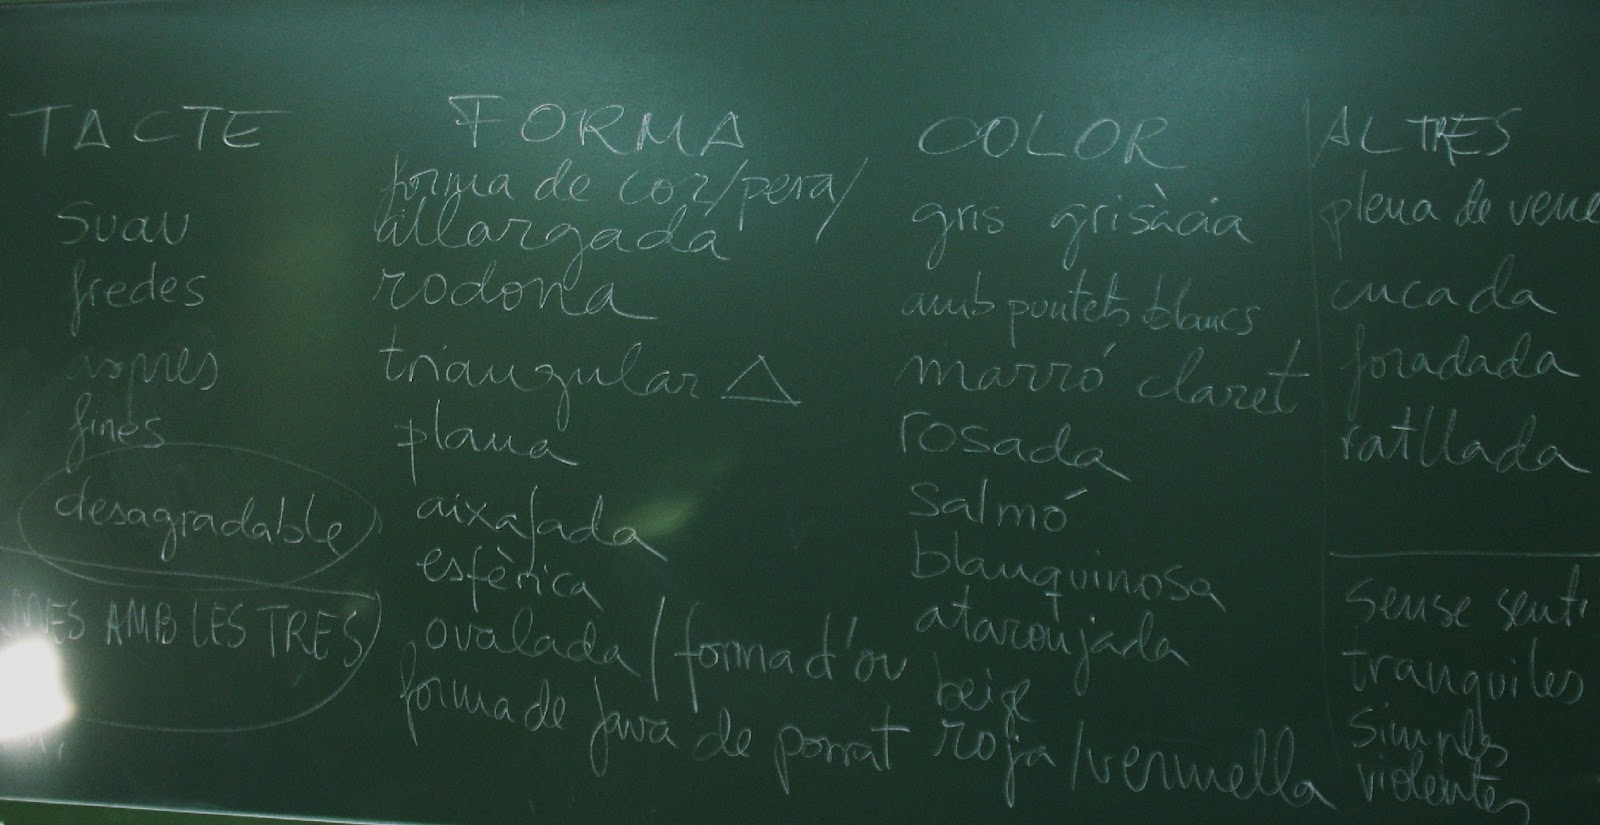 TACTE
suau
fredes
fines
desagradable
AMB LES TRES
FORMA
forma de cor/pera/
allargada
rodona
triangular
plana
aixafada
esfèrica
ovalada/forma d'ou
forma de java de porrat
COLOR
gris grisàcia
amb puntets blancs
marró claret
rosada
salmó
blanquinosa
ataronjada
beige
roja/vermella
ALTRES
plena de vene
cucada
foradada
ratllada
sense senti
tranquiles
simples
violentes